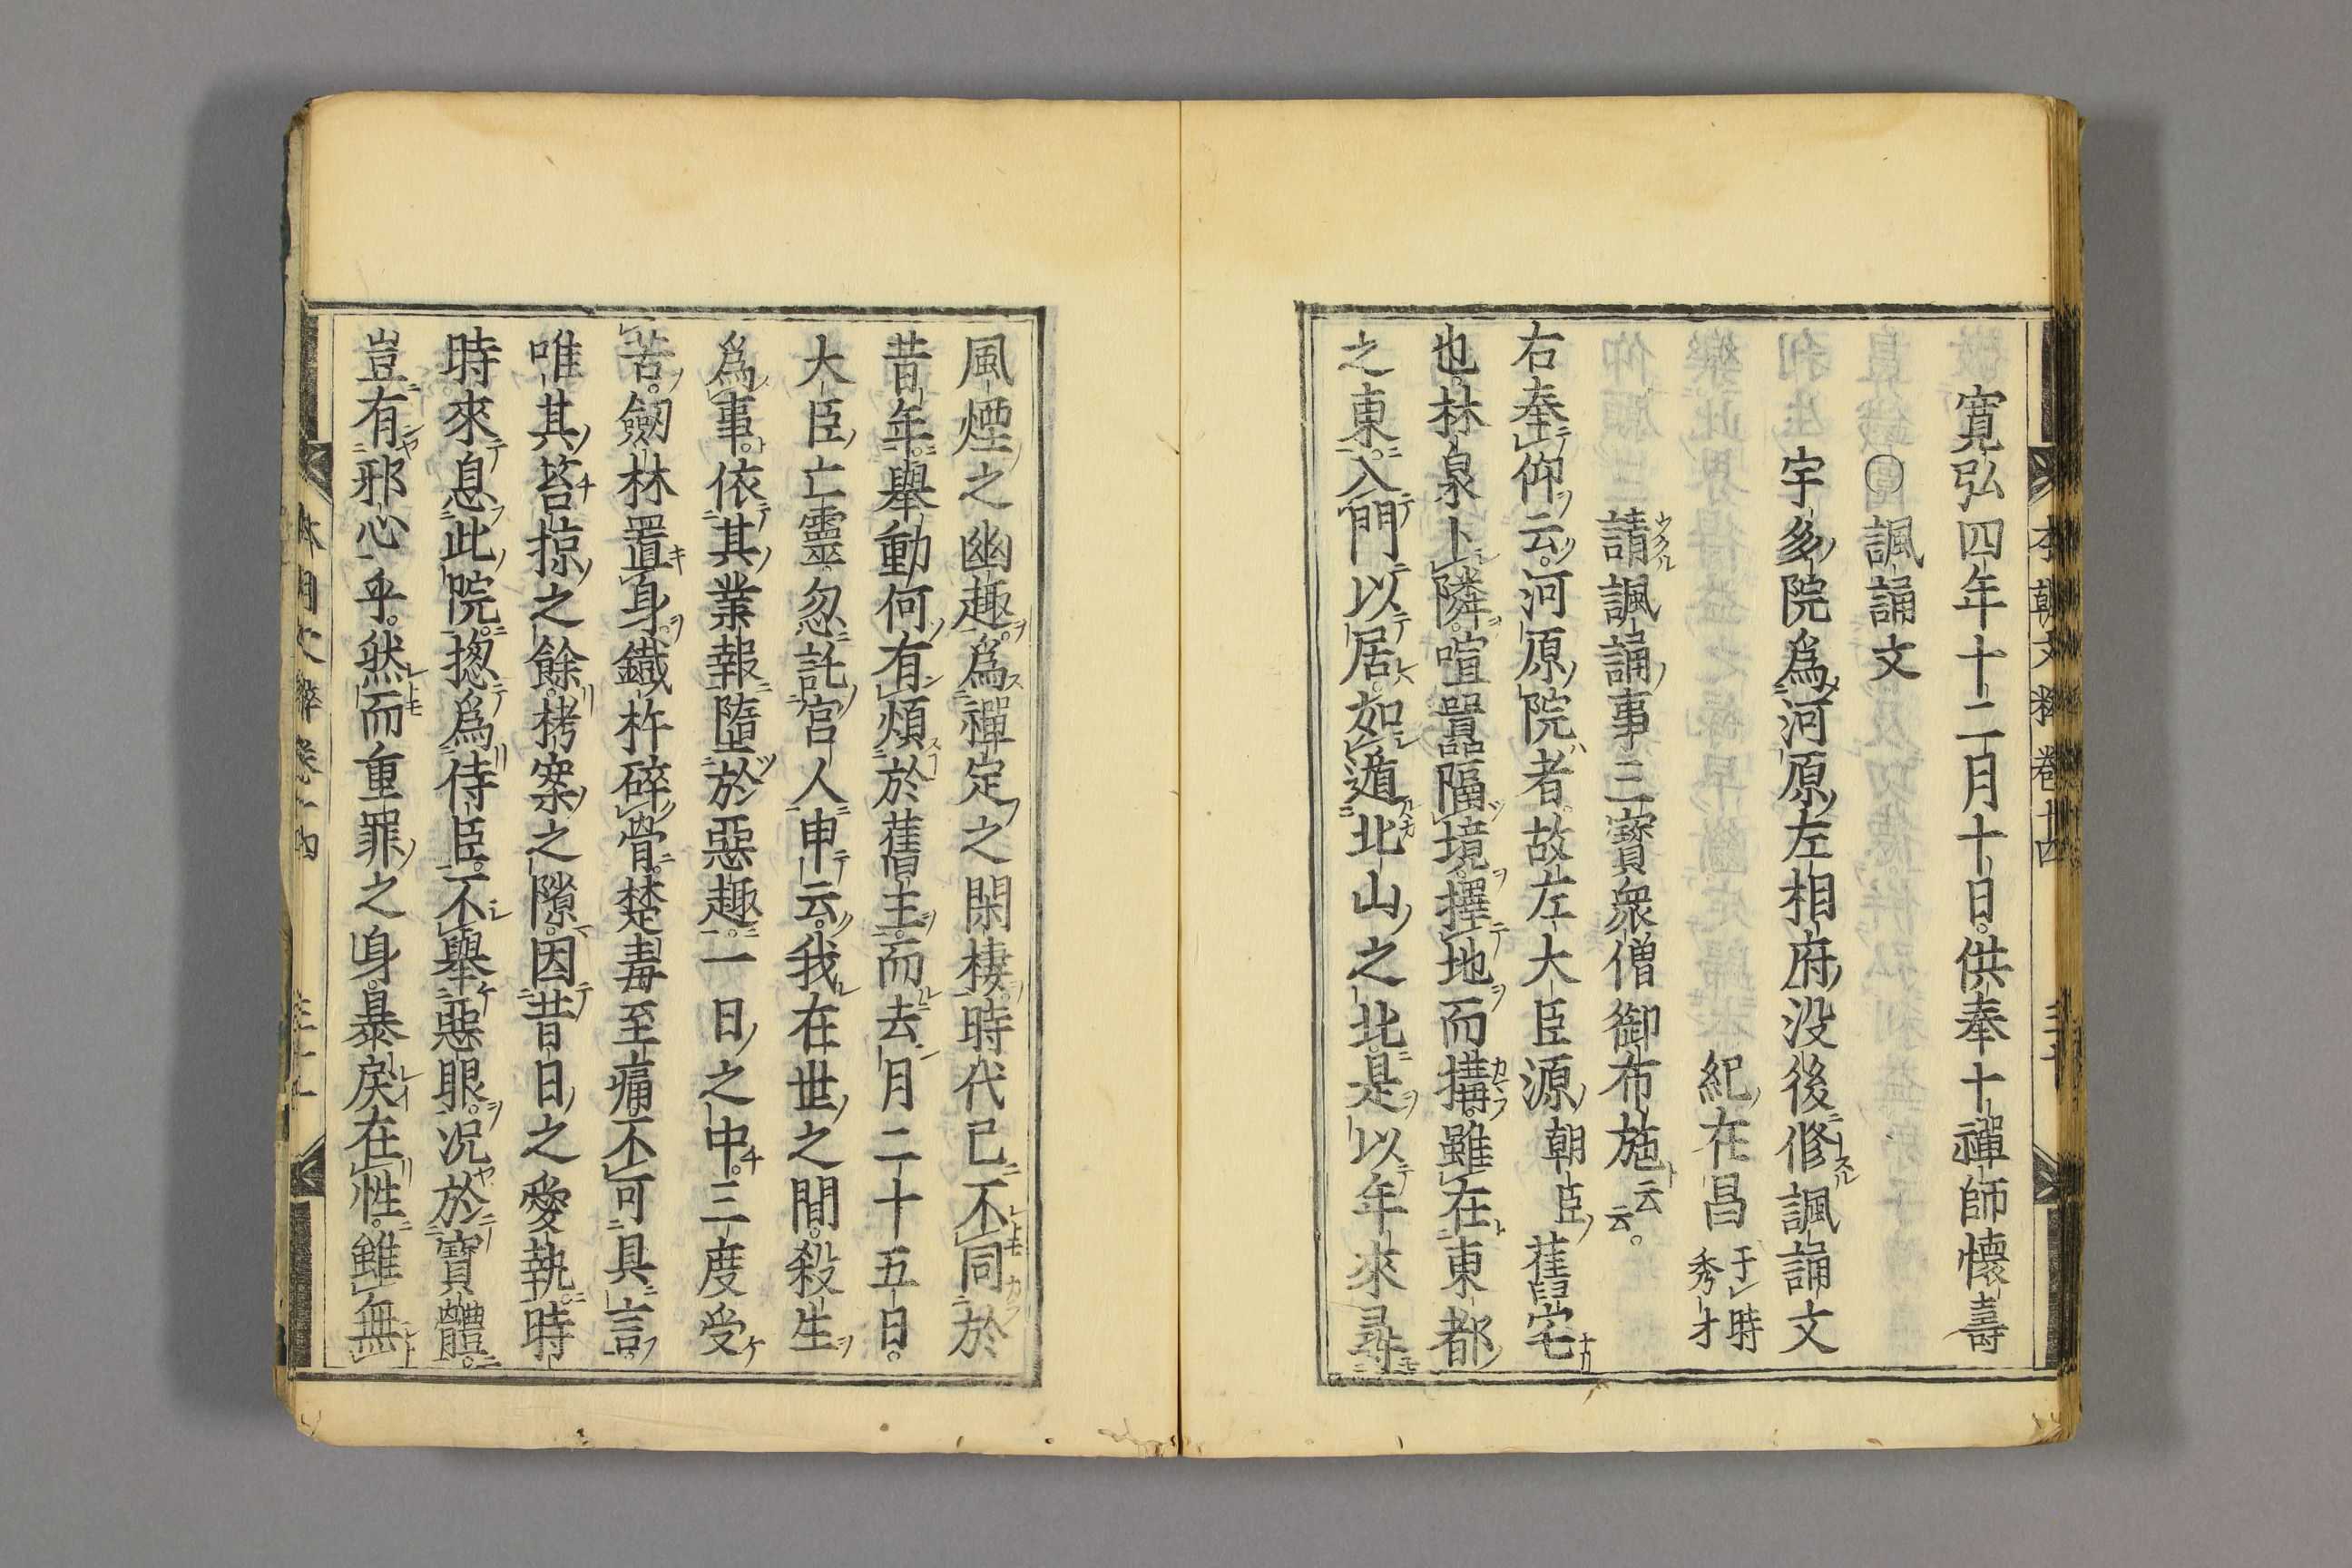 寛弘四年十二月十日。供奉十禪師懷壽
○諷誦文
宇多院爲河原左相府没後修諷誦文
紀在昌 于時秀才
請諷誦事三寶衆僧御布施云云。
右奉仰云。河原院者。故左大臣源朝臣舊宅
也。林泉卜隣。喧囂隔境。擇地而搆。雖在東都
之東。入門以居。如遁北山之北。是以年來尋
風煙之幽趣。爲禪定之閑棲。時代已不同於
昔年。擧動何有煩於舊主。而去月二十五日。
大臣亡靈。忽託宮人申云。我在世之間。殺生
爲事。依其業報。墮於惡趣。一日之中。三度受
苦。劒林置身。鐵杵碎骨。楚毒至痛。不可具言。
唯其笞掠之餘。拷案之隙。因昔日之愛執。時
時來息此院。揔爲侍臣。不擧惡眼。况於寶體。
豈有邪心乎。然而重罪之身。暴戾在性。雖無
本朝文粹卷十四